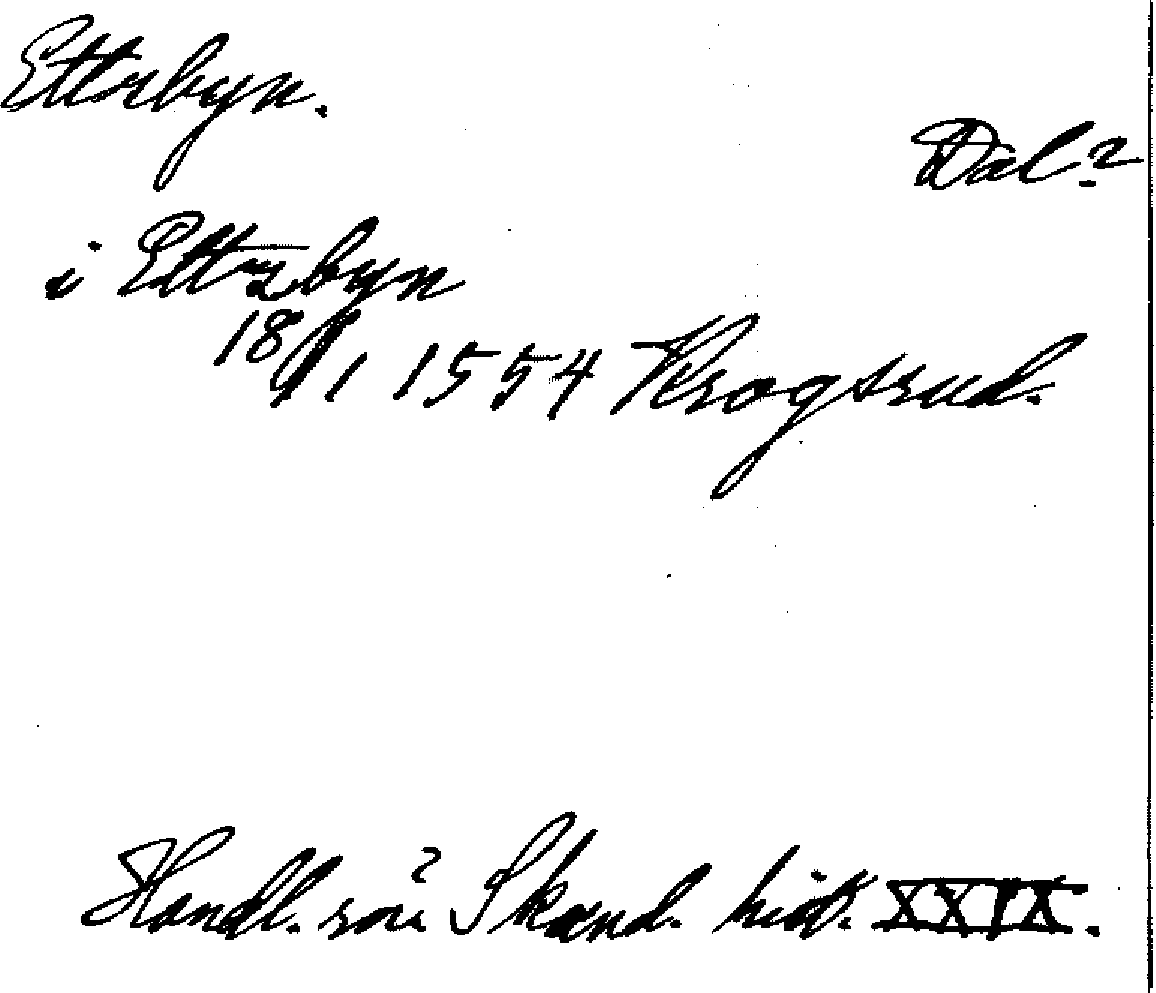 Ettrbyn.
Dal?
i Ettrzbyn
18/1 1554 Krogsrud.
Handl. rör. Skand. hist. XXIX.